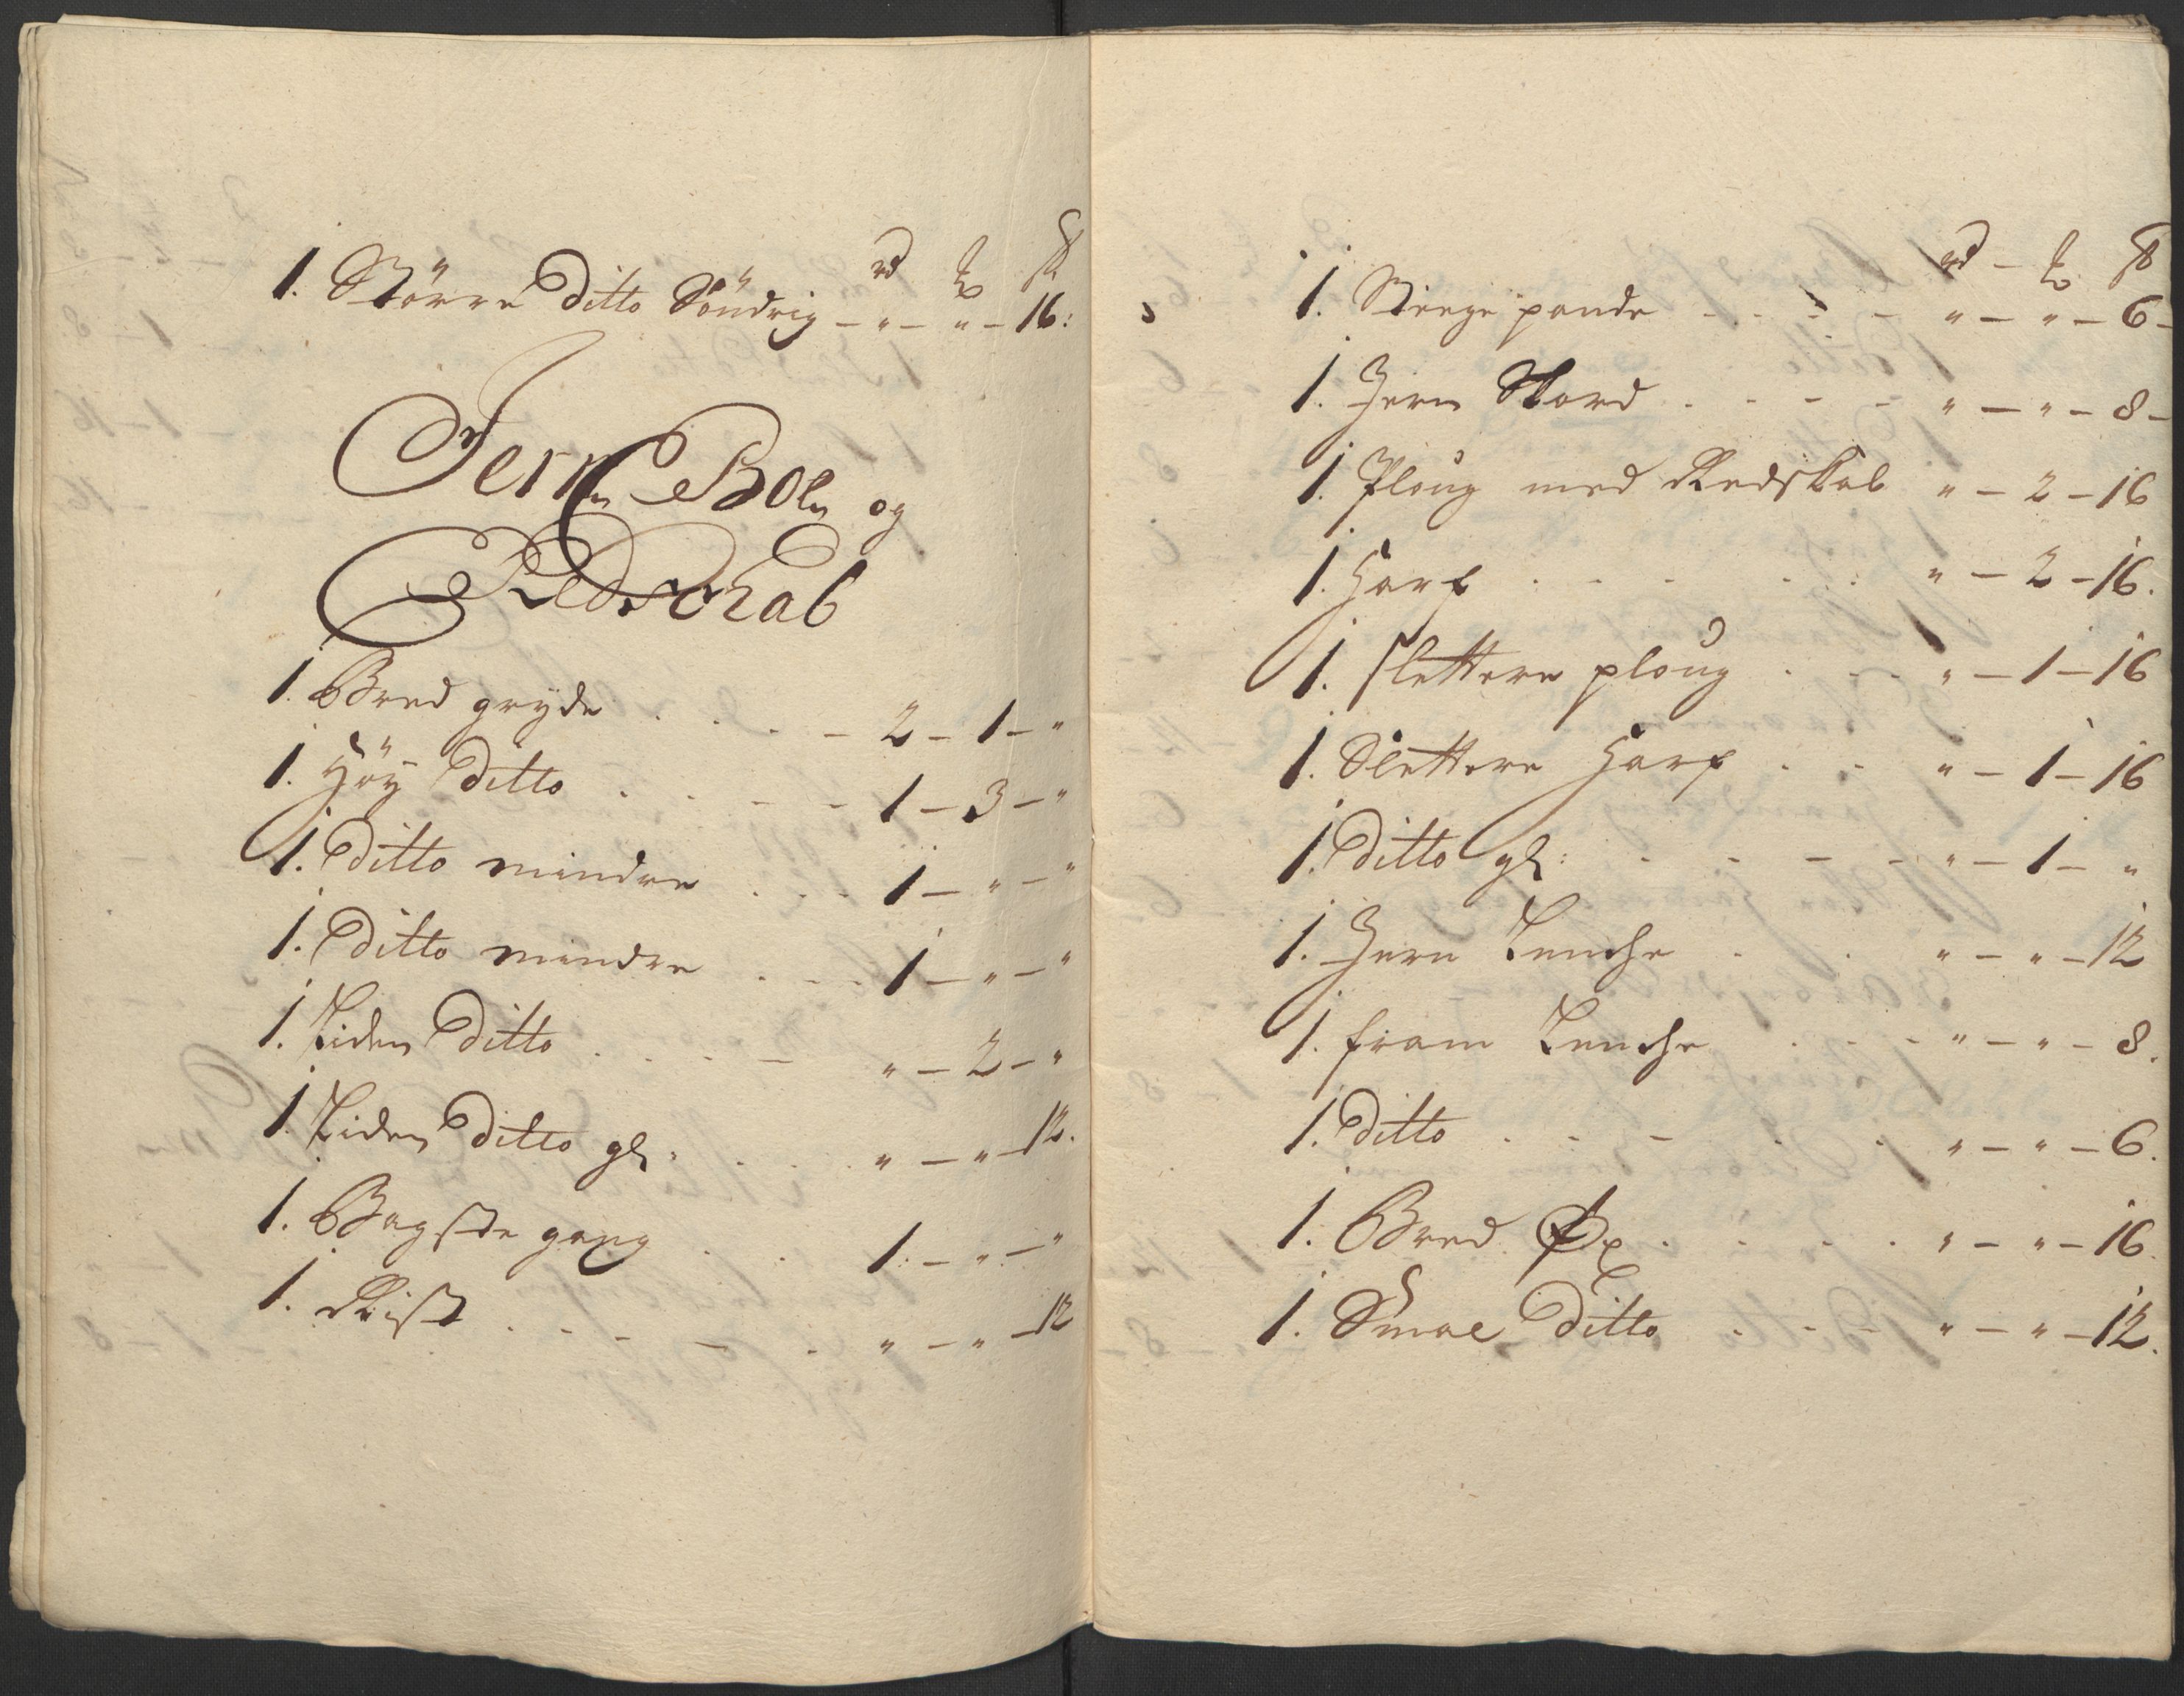 rd ß
1. Större Ditto Söndrig – " – " – 16:
Jern Boln og
Redschab
1. Bred gryde . . . – 2 – 1 – "
1. Höy Ditto . . – – 1 – 3 – "
1. Ditto mindre . . . 1 – " – "
1. Ditto mindre . . . 1 – " – "
1. Liden Ditto . . . – " – 2 – "
1. Liden Ditto gl: . . . " – " – 12.
1. Bagste gang . . 1. – " – "
1. Rist . – – – . " – " – 12
rd – ß
1. Steege pande – . . – " – " – 6 –
1. Jern Stord . – – – " – " – 8 –
1. Ploug med Redskab " – 2 – 16
1. Harf . . . . . " – 2 – 16.
1. slettere ploug . . . " – 1 – 16
1. Slettere Harf . . " – 1 – 16
1. Ditto gl: . – – – " – 1 – "
1. Jern Lenche . . " – " – 12
1. fram Lenche . . . " – " – 8.
1. Ditto . . – . . " – " – 6.
1. Bred Øx . . . . " – " – 16.
1. Smal Ditto . . . " – " – 12.